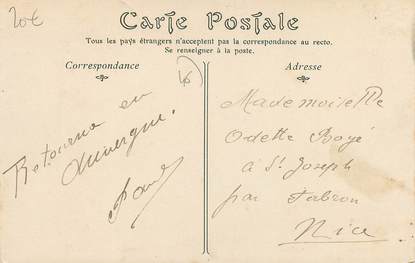 20€
Carte Postale
Tous les pays étrangers n'acceptent pas la correspondance au recto.
Se renseigner à la poste.
Correspondance
Adresse
Retourne en
Auvergne.
Paul
Mademoiselle
Odette Boyé
à St Joseph
par Fabron
Nice